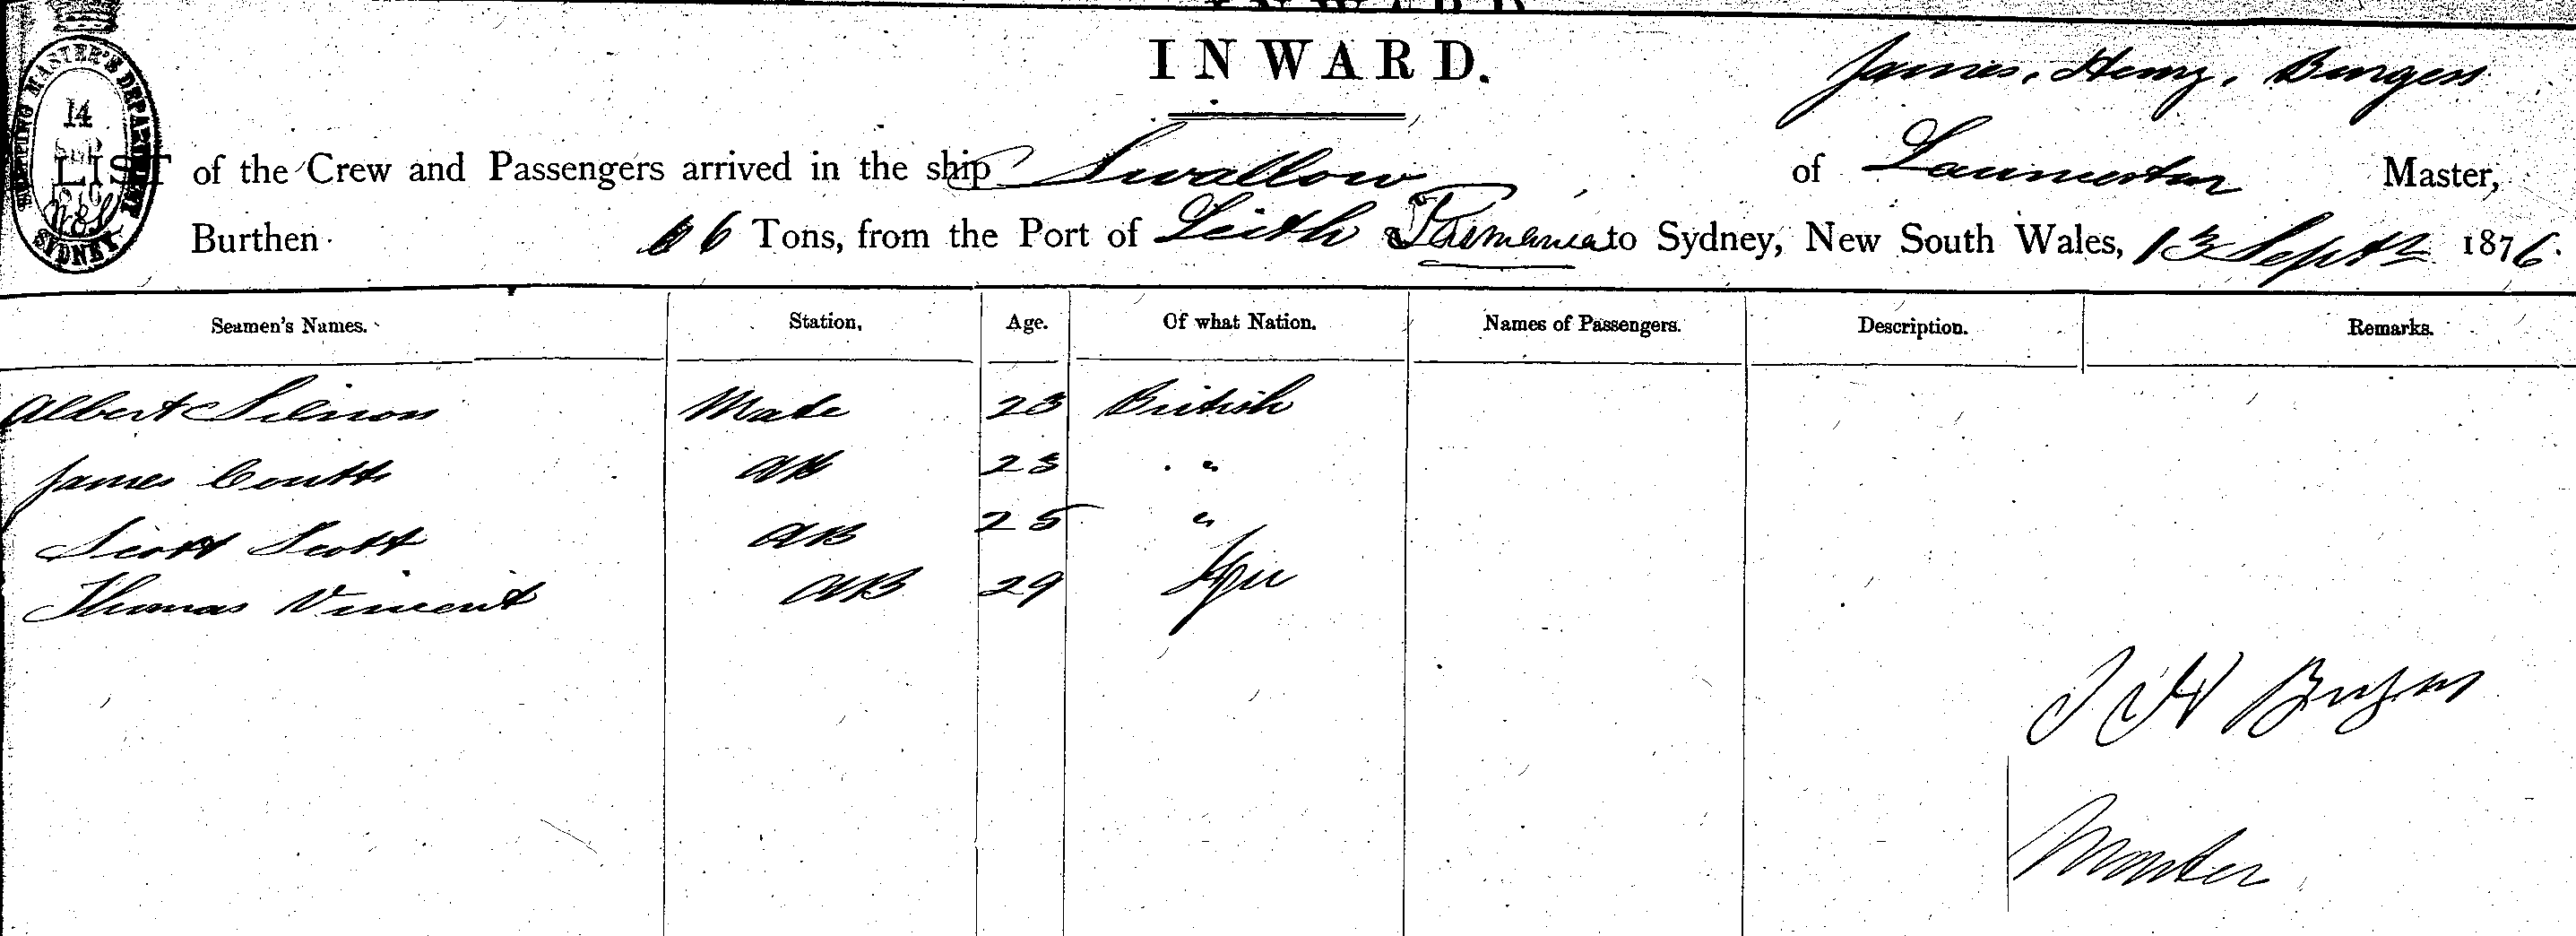 INWARD.
James, Henry, Burgess
SHIPPING MASTER'S DEPARTMENT
14
SEP
1876
SYDNEY
LIST of the Crew and Passengers arrived in the ship Swallow of Launceston Master,
Burthen 66 Tons, from the Port of Leith Tasmania to Sydney, New South Wales, 13 Septr 1876.
Seamen's Names. Station. Age. Of what Nation. Names of Passengers. Description. Remarks.
Albert Mate 23 British
James Coutts AB 23 "
Scott Scott AB 25 "
Thomas Vincent AB 29
J H Burgess
Master